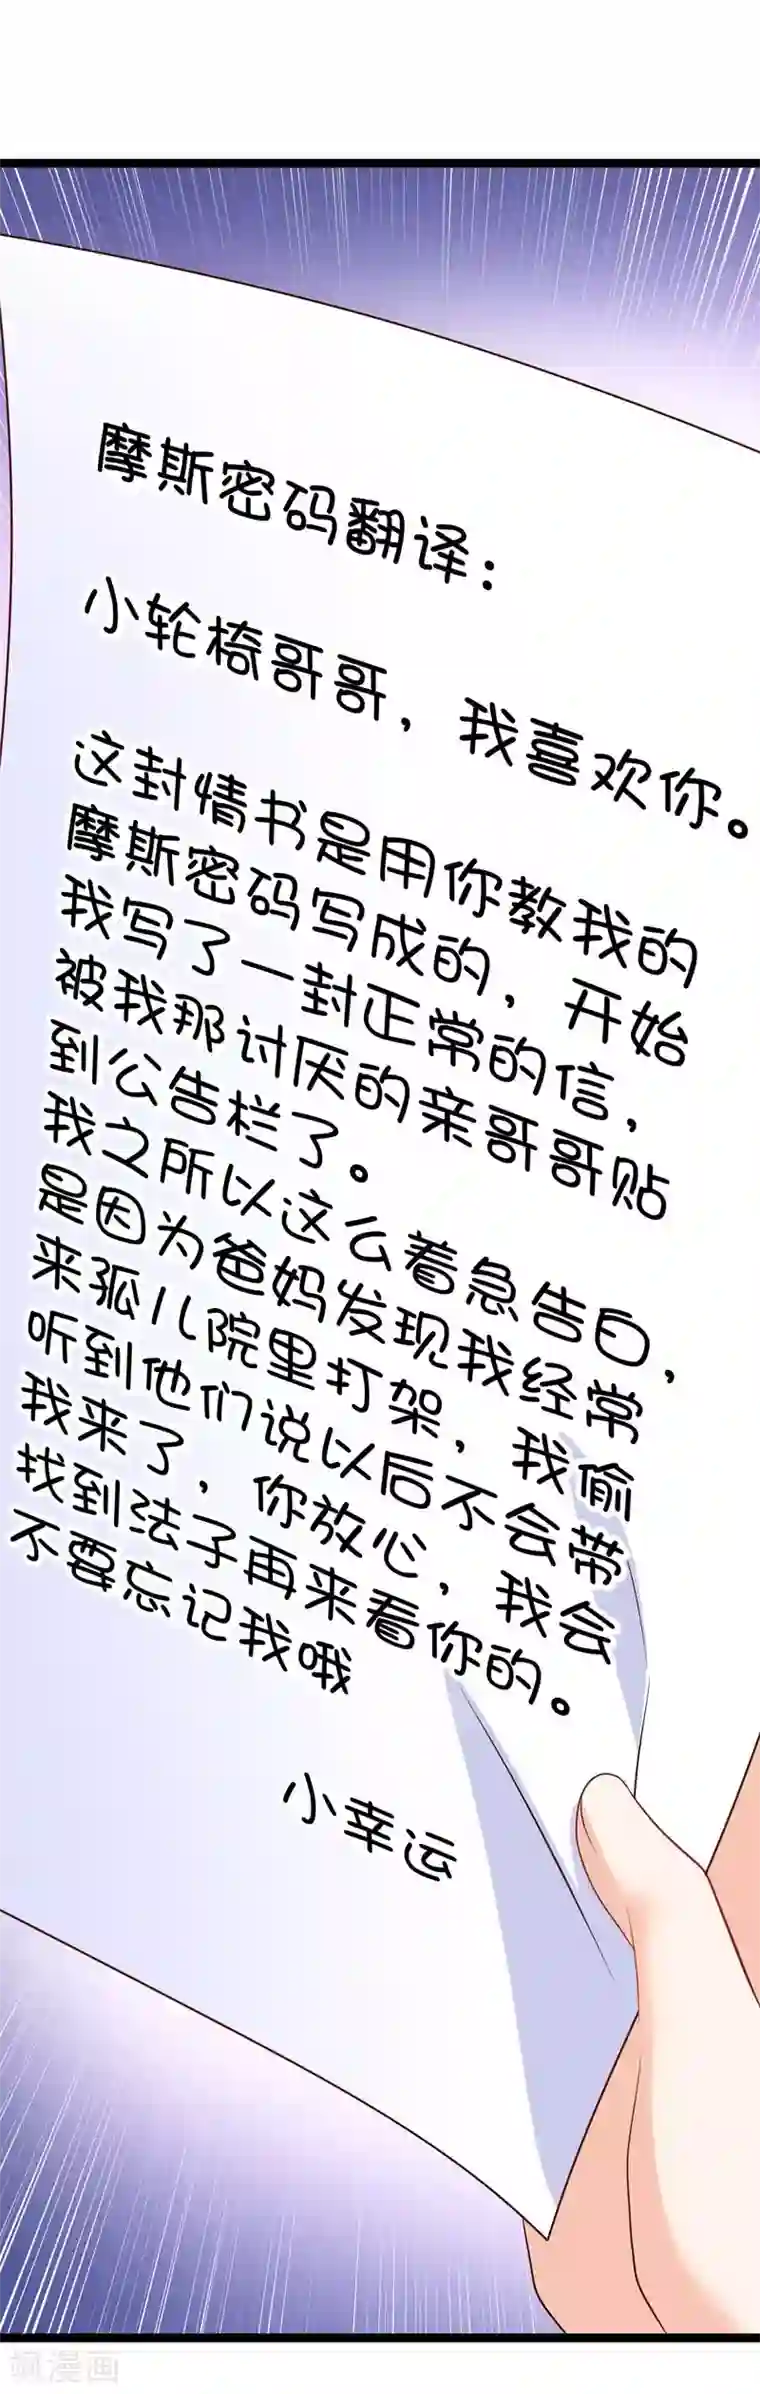 摩斯密码翻译：
小轮椅哥哥，我喜欢你。
这封情书是用你教我的
摩斯密码写成的，开始
我写了一封正常的信，
被我那讨厌的亲哥哥贴
到公告栏了。
我之所以这么着急告白，
是因为爸妈发现我经常
来孤儿院里打架，我偷
听到他们说以后不会带
我来了，你放心，我会
找到法子再来看你的。
不要忘记我哦
小幸运
飒漫画